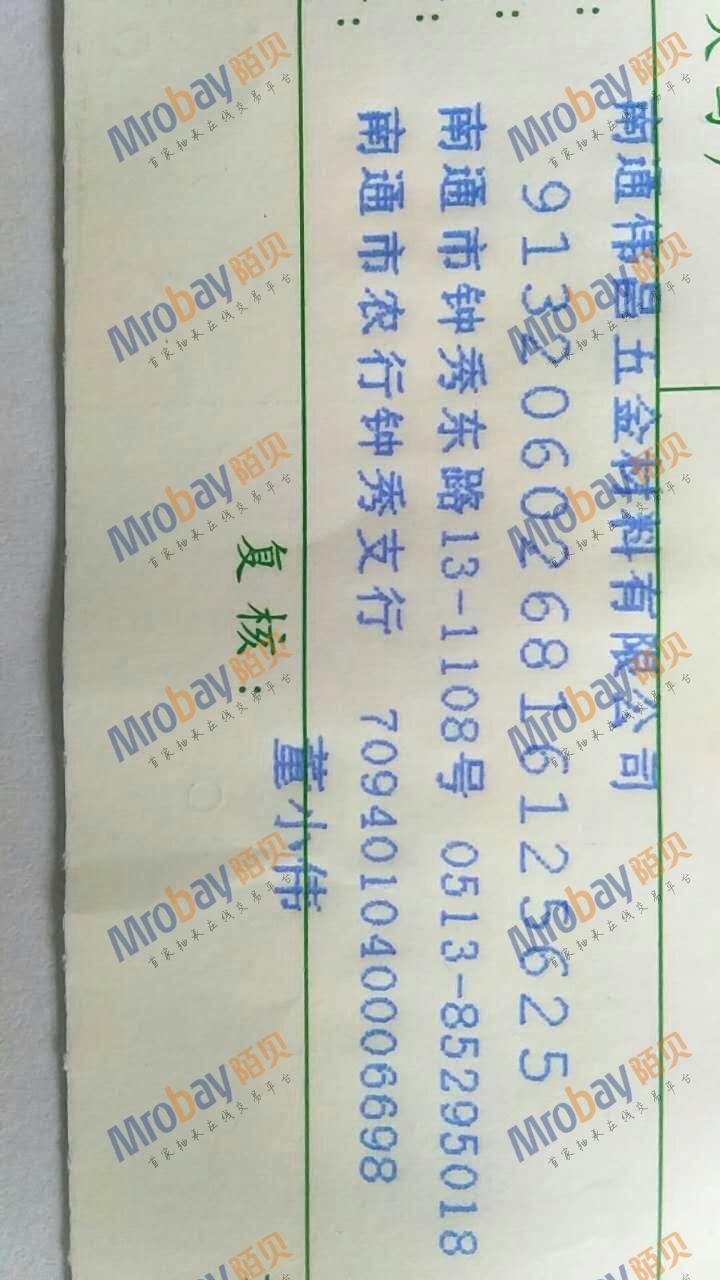 大写)
南通伟昌五金材料有限公司
913206026816125625
南通市钟秀东路13-1108号 0513-85295018
南通市农行钟秀支行 709401040006698
复核: 董小伟
Mrobay陌贝
首家轴承在线交易平台